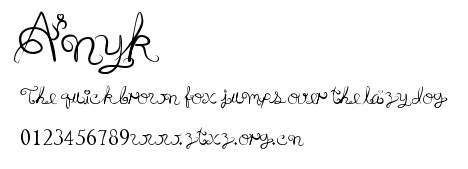 Ainyk
The quick brown fox jumps over the lazy dog
0123456789www.ztxz.org.cn